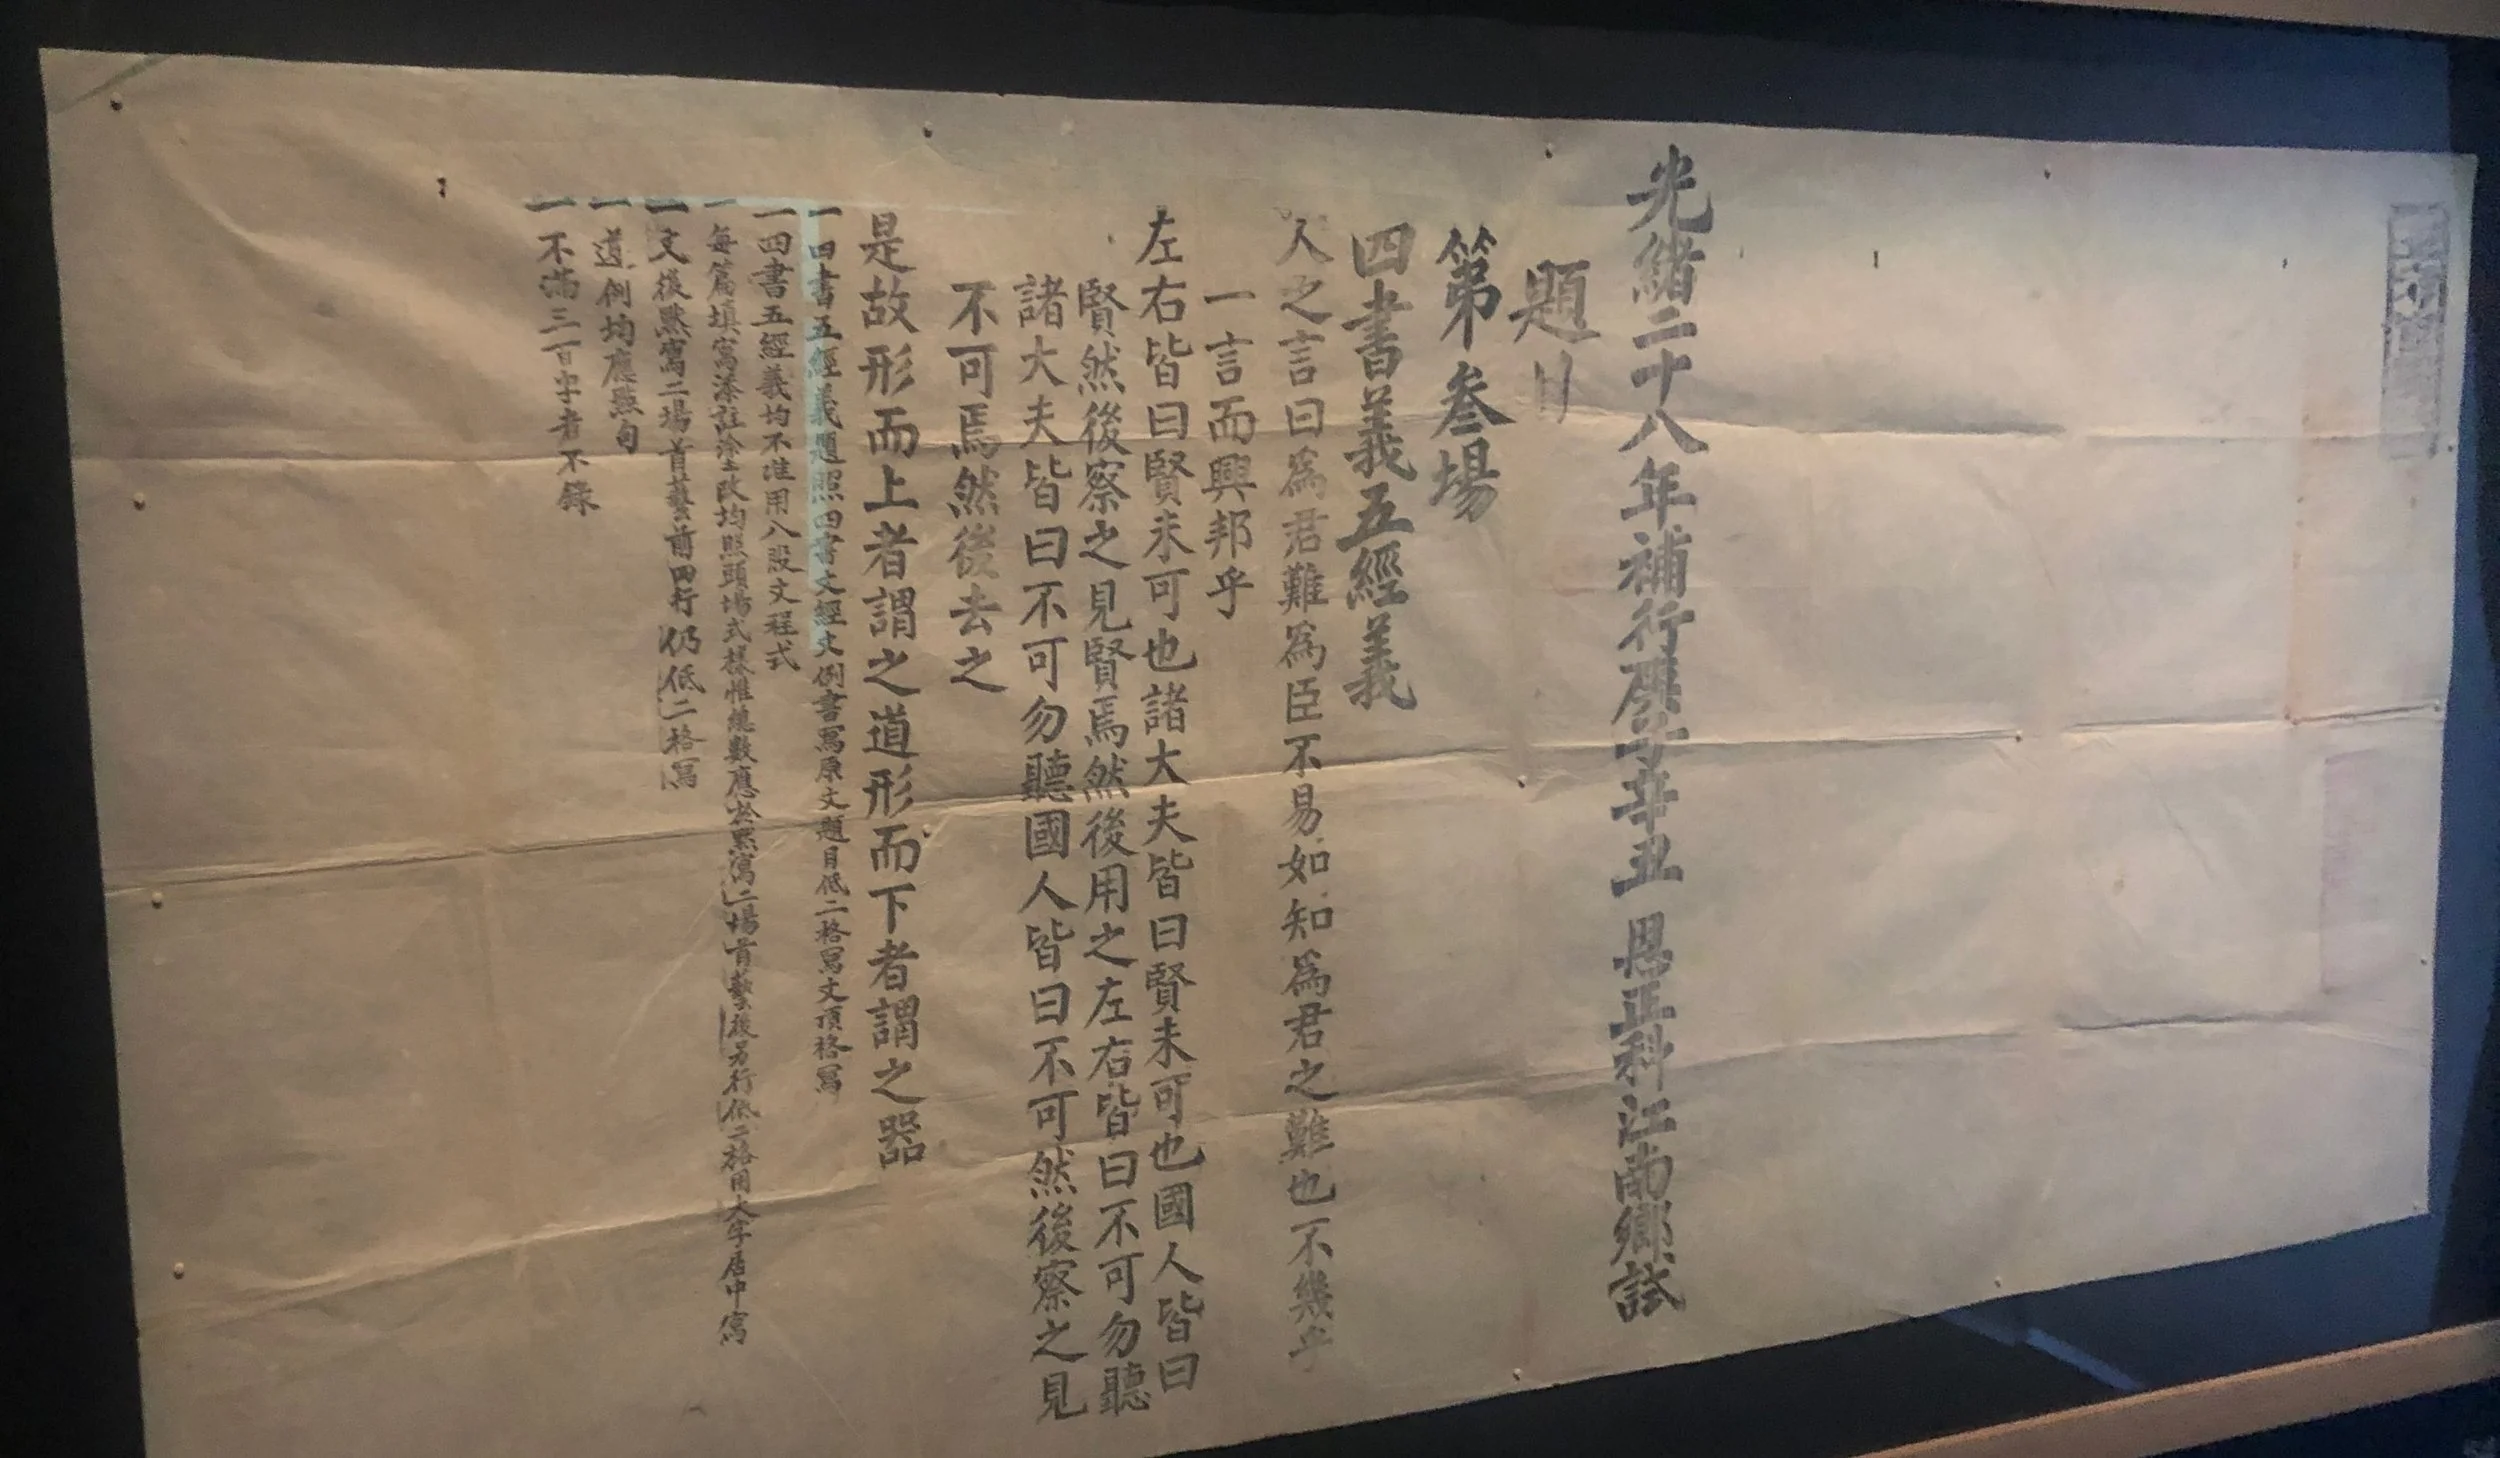 光緒二十八年補行庚子辛丑恩正科江南鄉試
題
第叁場
四書義五經義
人之言曰為君難為臣不易如知為君之難也不幾乎
一言而興邦乎
左右皆曰賢未可也諸大夫皆曰賢未可也國人皆曰
賢然後察之見賢焉然後用之左右皆曰不可勿聽
諸大夫皆曰不可勿聽國人皆曰不可然後察之見
不可焉然後去之
是故形而上者謂之道形而下者謂之器
一四書五經義題照四書文經文例書寫原文題目低二格寫文頂格寫
一四書五經義均不准用八股文程式
一每篇填寫添註塗改均照頭場式樣惟總數應於默寫二場首藝後另行低二格用大字居中寫
一文後默寫二場首藝前四行仍低二格寫
一遵例均應點句
一不滿三百字者不錄